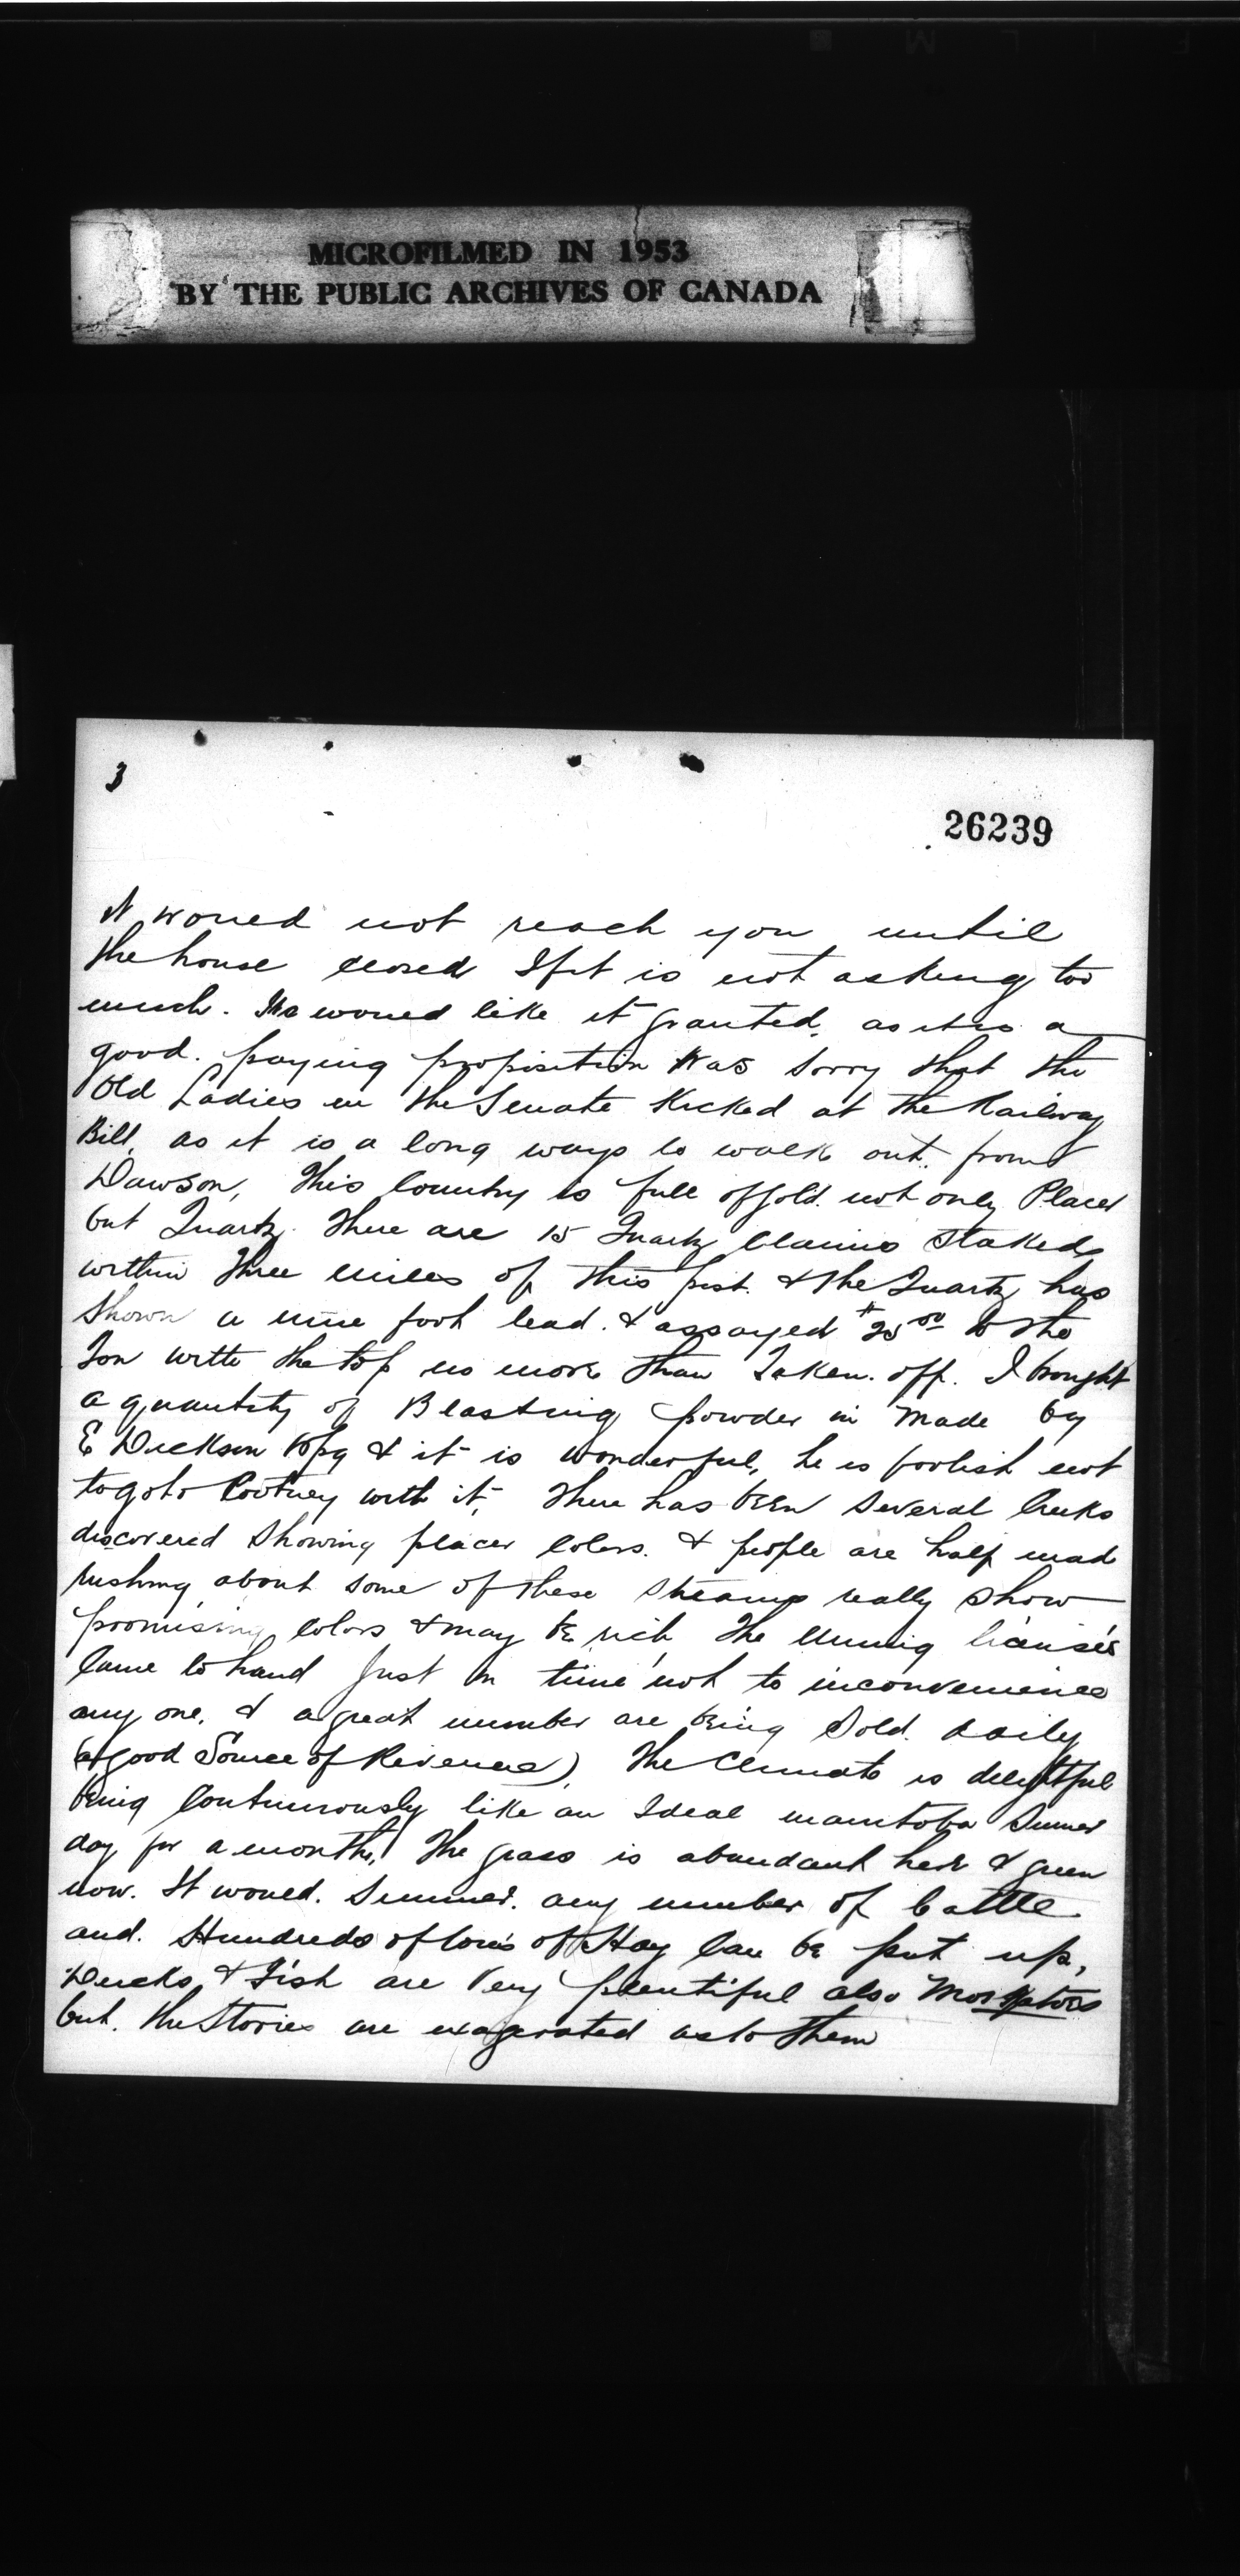 MICROFILMED IN 1953
BY THE PUBLIC ARCHIVES OF CANADA
3
26239
it would not reach you until
the house closed If it is not asking too
much. would like it granted, as it is a
good. paying proposition Was sorry that the
Old Ladies in the Senate Kicked at the Railway
Bill, as it is a long ways to walk out. from
Dawson, This Country is full of gold. not only Placer
but Quartz. There are 15 Quartz Claims Staked
within three miles of this post. & the Quartz has
Shown a nine foot lead. & assayed $25 00 to the
Ton with the top no more than Taken. off. I bought
a quantity of Blasting powder in made by
E Dickson Wpg & it is wonderful, he is foolish not
to go to Kootney with it, There has been several Creeks
discovered Showing placer Colors. & people are half mad
rushing about some of these streams really show
promising Colors & may be rich The Mining licenses
Came to hand Just in time not to inconvenience
any one, & a great number are being Sold. daily
(a good Source of Revenue). The Climate is delightful
being Continuously like an Ideal Manitoba Summer
day for a month, The grass is abundant here & green
now. It would. Summer. any number of Cattle
and. Hundreds of tons of Hay Can be put up,
Ducks & Fish are Very plentiful also Moskatoes
but. the Stories are exagerated as to them